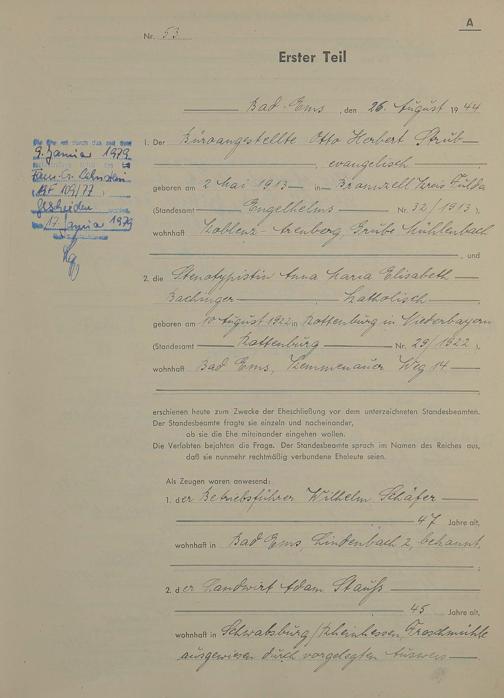 A
Nr. 53
Erster Teil
Bad Ems, den 26. August 1944
1. Der Büroangestellte Otto Herbert Strub
evangelisch
geboren am 2. Mai 1913 in Bronnzell Kreis Fulda
(Standesamt Engelhelms Nr. 32/1913),
wohnhaft Koblenz-Arenberg Grube Mühlenbach
, und
2. die Stenotypistin Anna Maria Elisabeth
Bachinger Katholisch
geboren am 10 August 1922 in Rottenburg in Niederbayern
(Standesamt Rottenburg Nr. 29/1922),
wohnhaft Bad Ems, Kemmenauer Weg 14
erschienen heute zum Zwecke der Eheschließung vor dem unterzeichneten Standesbeamten.
Der Standesbeamte fragte sie einzeln und nacheinander,
ob sie die Ehe miteinander eingehen wollen.
Die Verlobten bejahten die Frage. Der Standesbeamte sprach im Namen des Reiches aus,
daß sie nunmehr rechtmäßig verbundene Eheleute seien.
Als Zeugen waren anwesend:
1. der Betriebsführer Wilhelm Schäfer
47 Jahre alt,
wohnhaft in Bad Ems, Lindenbach 2, bekannt,
2. der Landwirt Adam Stauß
45 Jahre alt,
wohnhaft in Schwabsburg/Rheinhessen, Froschmühle
ausgewiesen durch vorgelegten Ausweis
9. Januar 1979
109/77
geschieden
17. Januar 1979